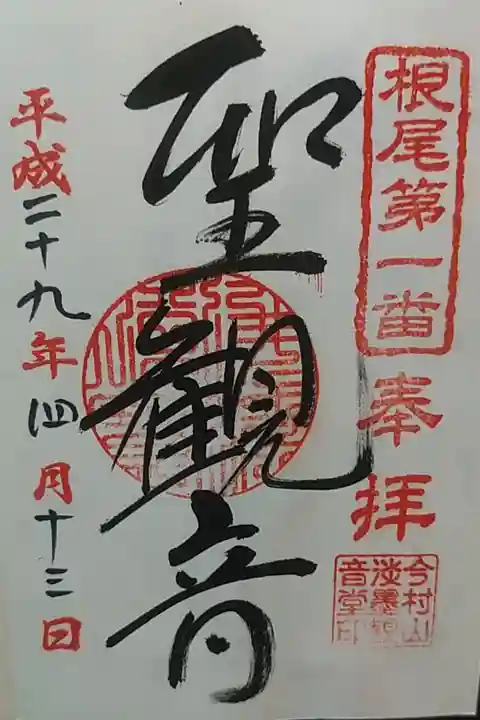 根尾第一番
奉拝
聖観音
平成二十九年四月十三日
今村山
淡墨観
音堂印